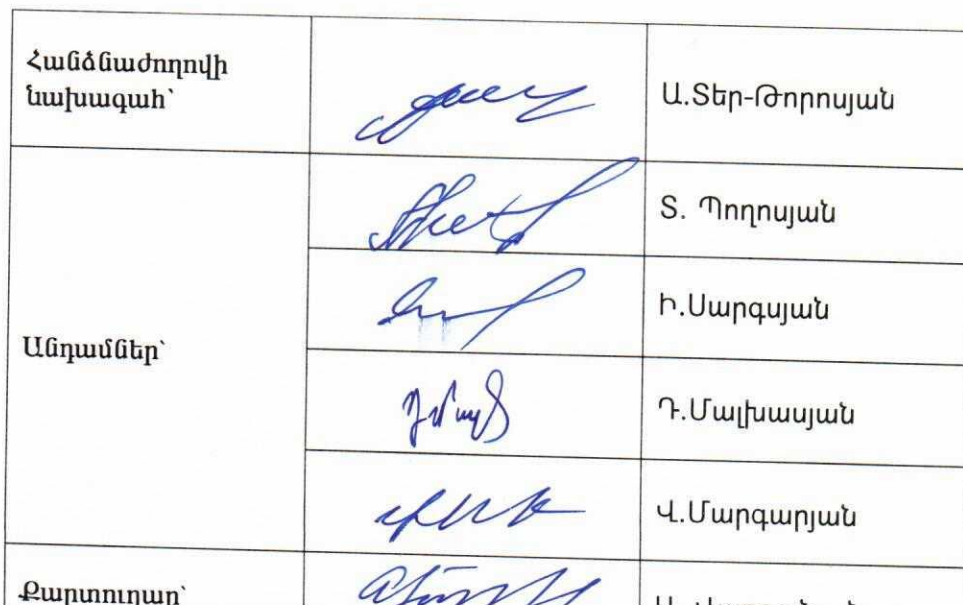 Հանձնաժողովի
նախագահ՝
Ա.Տեր-Թորոսյան
Տ. Պողոսյան
Ի.Սարգսյան
Անդամներ՝
Դ.Մալխասյան
Վ.Մարգարյան
Քարտուղար՝